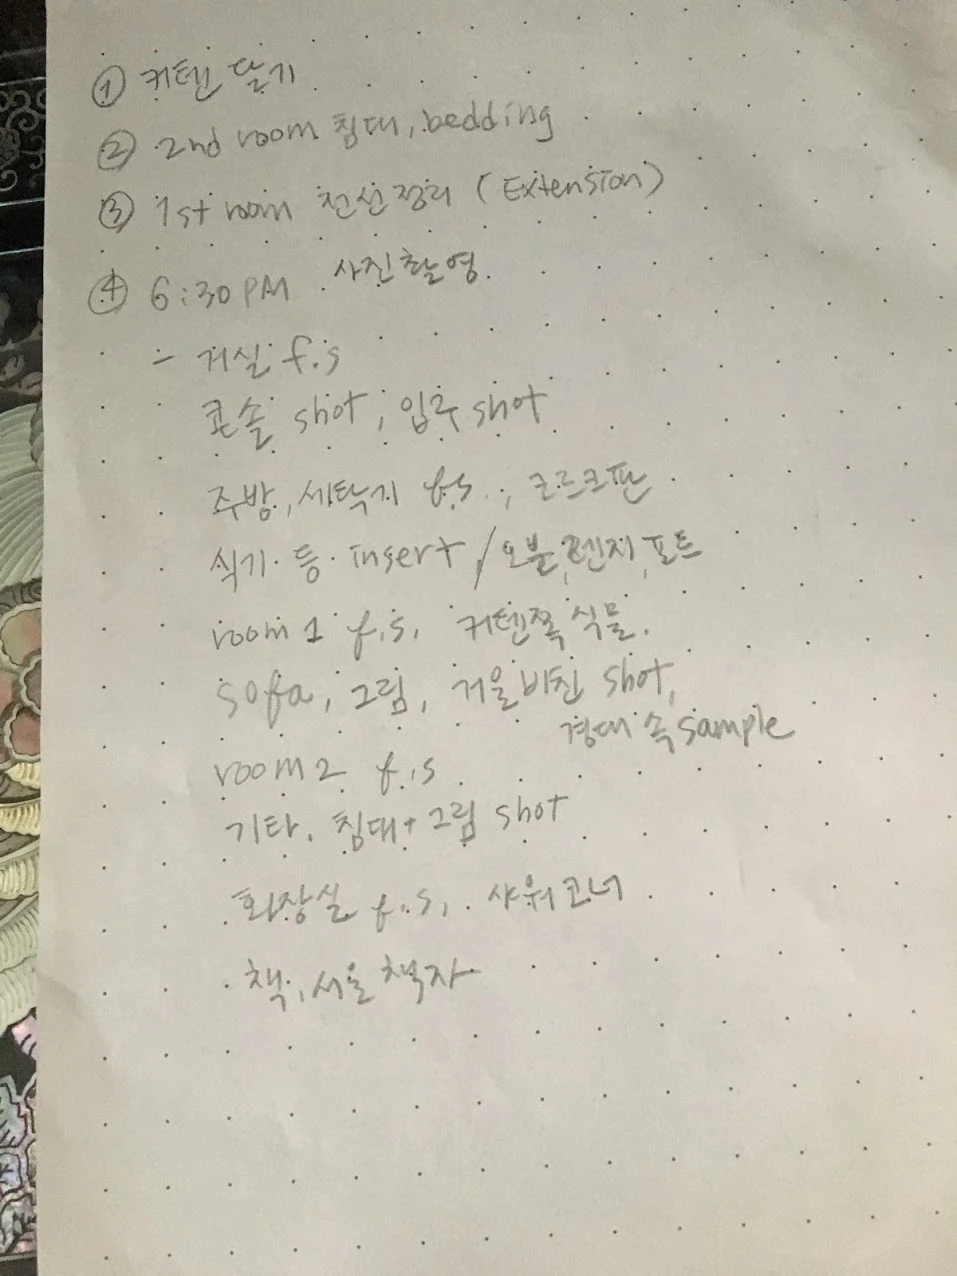 ① 커텐 달기
② 2nd room 침대, bedding
③ 1st room 전선정리 (Extension)
④ 6:30 PM 사진촬영.
- 거실 f.s
콘솔 shot, 입구 shot
주방, 세탁기 f.s., 코르크판
식기 등 insert / 오븐, 렌지, 포트
room 1 f.s. 커텐쪽 식물.
sofa, 그림, 거울비친 shot,
경대 속 sample
room 2 f.s.
기타. 침대 + 그림 shot
화장실 f.s, 샤워코너
책, 서울 책자